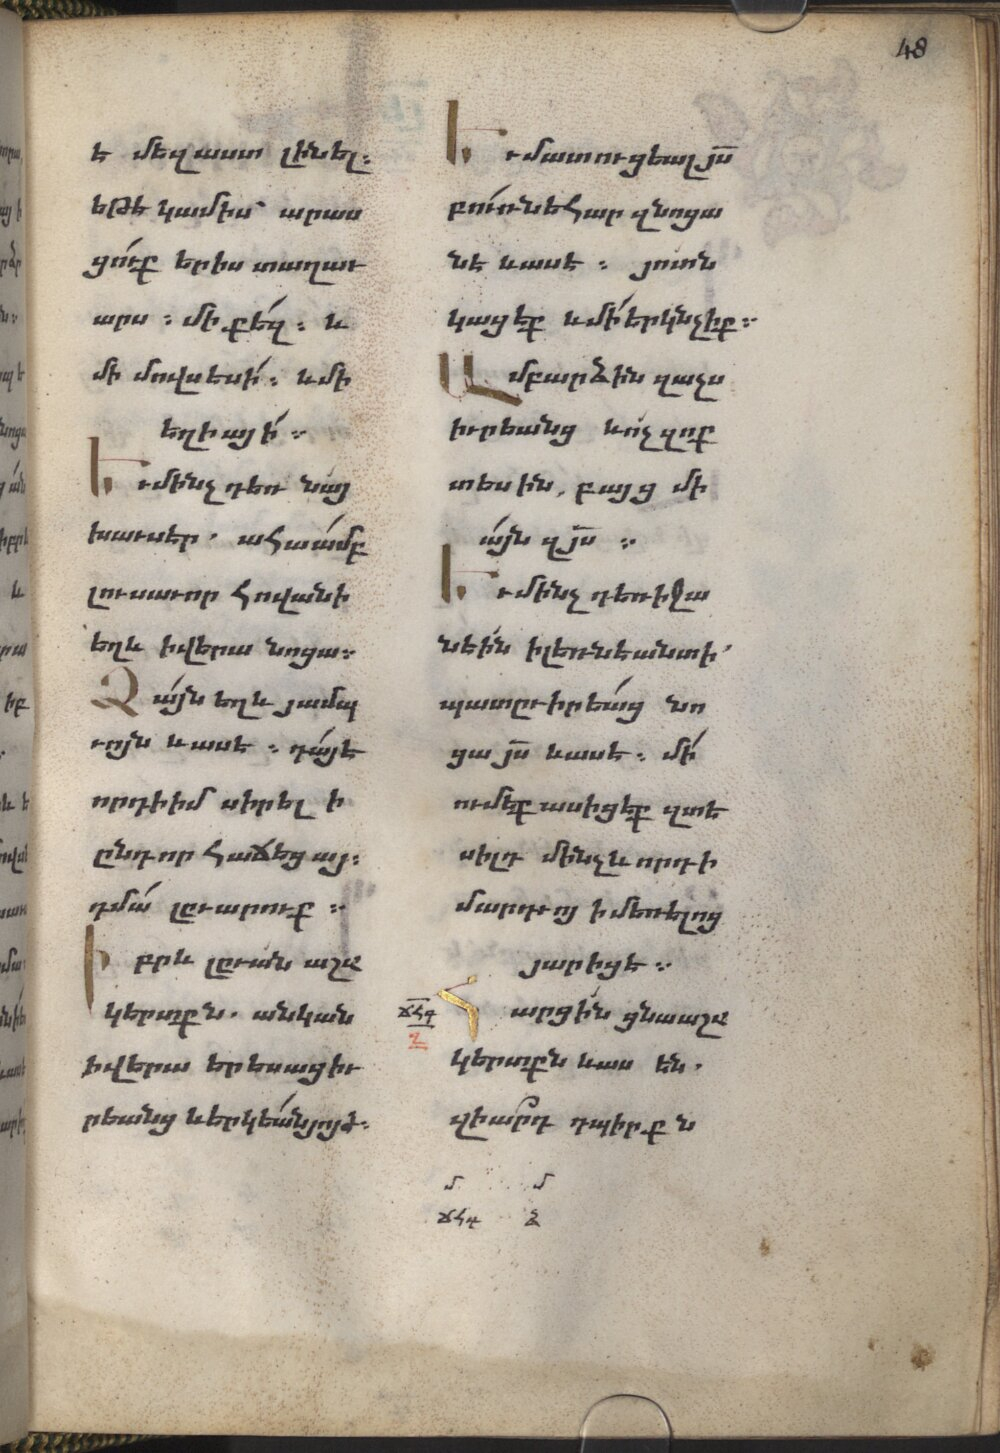 48
է մեզ աստ լինել։
եթե կամիս՝ արաս
ցո՛ւք երիս տաղաւ
արս ։ մի քե՛զ ։ և
մի մովսեսի՛ ։ և մի
եղիայի՛ ։
Եւ մինչ դեռ նա՛յ
խաւսէր · ահա ա՛մբ
լուսաւոր հովանի
եղև ի վերա նոցա։
Ձա՛յն եղև յամպ
ւոյն և ասէ ։ դա՛յէ
որդի իմ սիրել ի
ընդ որ հաճեցայ։
դմա՛ լըւարուք ։
Իբրև լըւան աշա
կերտքն · անկան
ի վերա երեսաց իւ
րեանց և երկե՛ան յոյժ։
Եւ մատուցեալ յս̄
բո՛ւռն եհար զնոցա
նէ և ասէ ։ յոտն
կացէք և մի՛ երկնչիք։
Ամբարձին զաչս
իւրեանց և ո՛չ զոք
տեսին, բայց մի
ա՛յն զյս̄ ։
Եւ մինչ դեռ իջա
նեին ի լեռնե անտի՛
պատըւիրեա՛ց նո
ցա յս̄ և ասէ ։ մի՛
ումէք ասիցէք զտե
սիլդ մինչև որդի
մարդւոյ ի մեռելոց
յարիցէ ։
Հարցին ցնա աշա
կերտքն և աս են ·
զիա՞րդ դպիրքն
ճՀդ
մ մ
ճՀդ